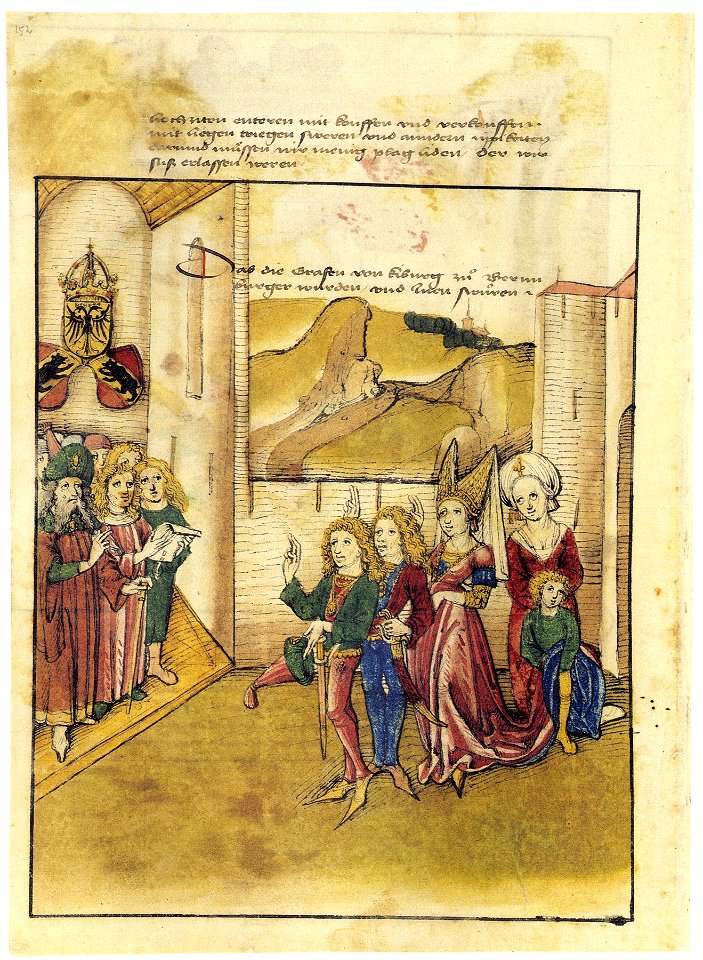 152
hochzyten enteren mit kouffen und verkouffen
mit liegen triegen sweren und anndern uppikeiten
darumb müssen wir menig plag liden der wir
suß erlassen weren
Das die Grafen von kiburg zů Bernn
burger wurden und Inen swůren